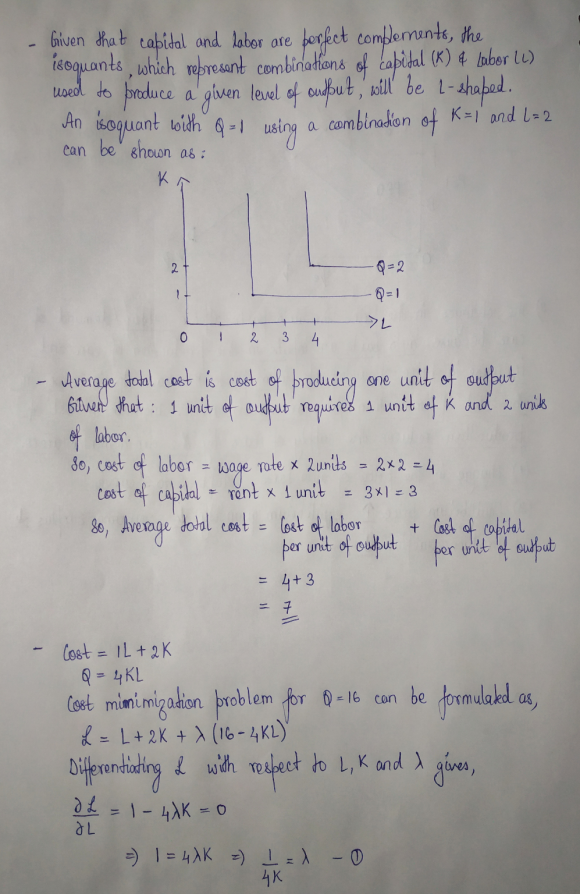 - Given that capital and labor are perfect complements, the
isoquants, which represent combinations of capital (K) & labor (L)
used to produce a given level of output, will be L-shaped.
An isoquant with Q=1 using a combination of K=1 and L=2
can be shown as:
K
2
Q=2
1
Q=1
L
0 1 2 3 4
- Average total cost is cost of producing one unit of output
Given that: 1 unit of output requires 1 unit of K and 2 units
of labor.
So, cost of labor = wage rate × 2units = 2×2 = 4
cost of capital = rent × 1 unit = 3×1 = 3
So, Average total cost = Cost of labor + Cost of capital
per unit of output per unit of output
= 4+3
= 7
- Cost = 1L + 2K
Q = 4KL
Cost minimization problem for Q=16 can be formulated as,
ℒ = L + 2K + λ (16 - 4KL)
Differentiating ℒ with respect to L, K and λ gives,
∂ℒ/∂L = 1 - 4λK = 0
⇒ 1 = 4λK ⇒ 1/4K = λ - ①